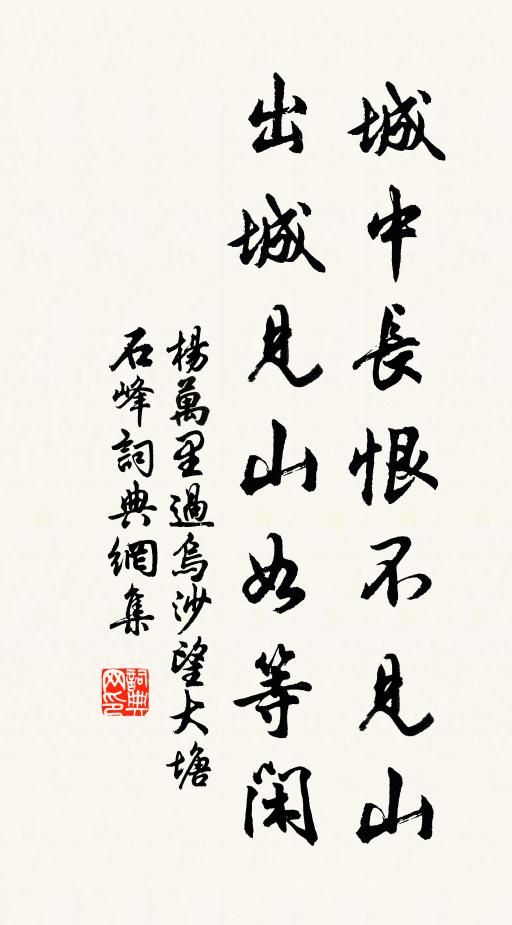 城中長恨不見山
出城見山如等閑
楊萬里過烏沙望大塘
石峰詞典網集
詞典
网印